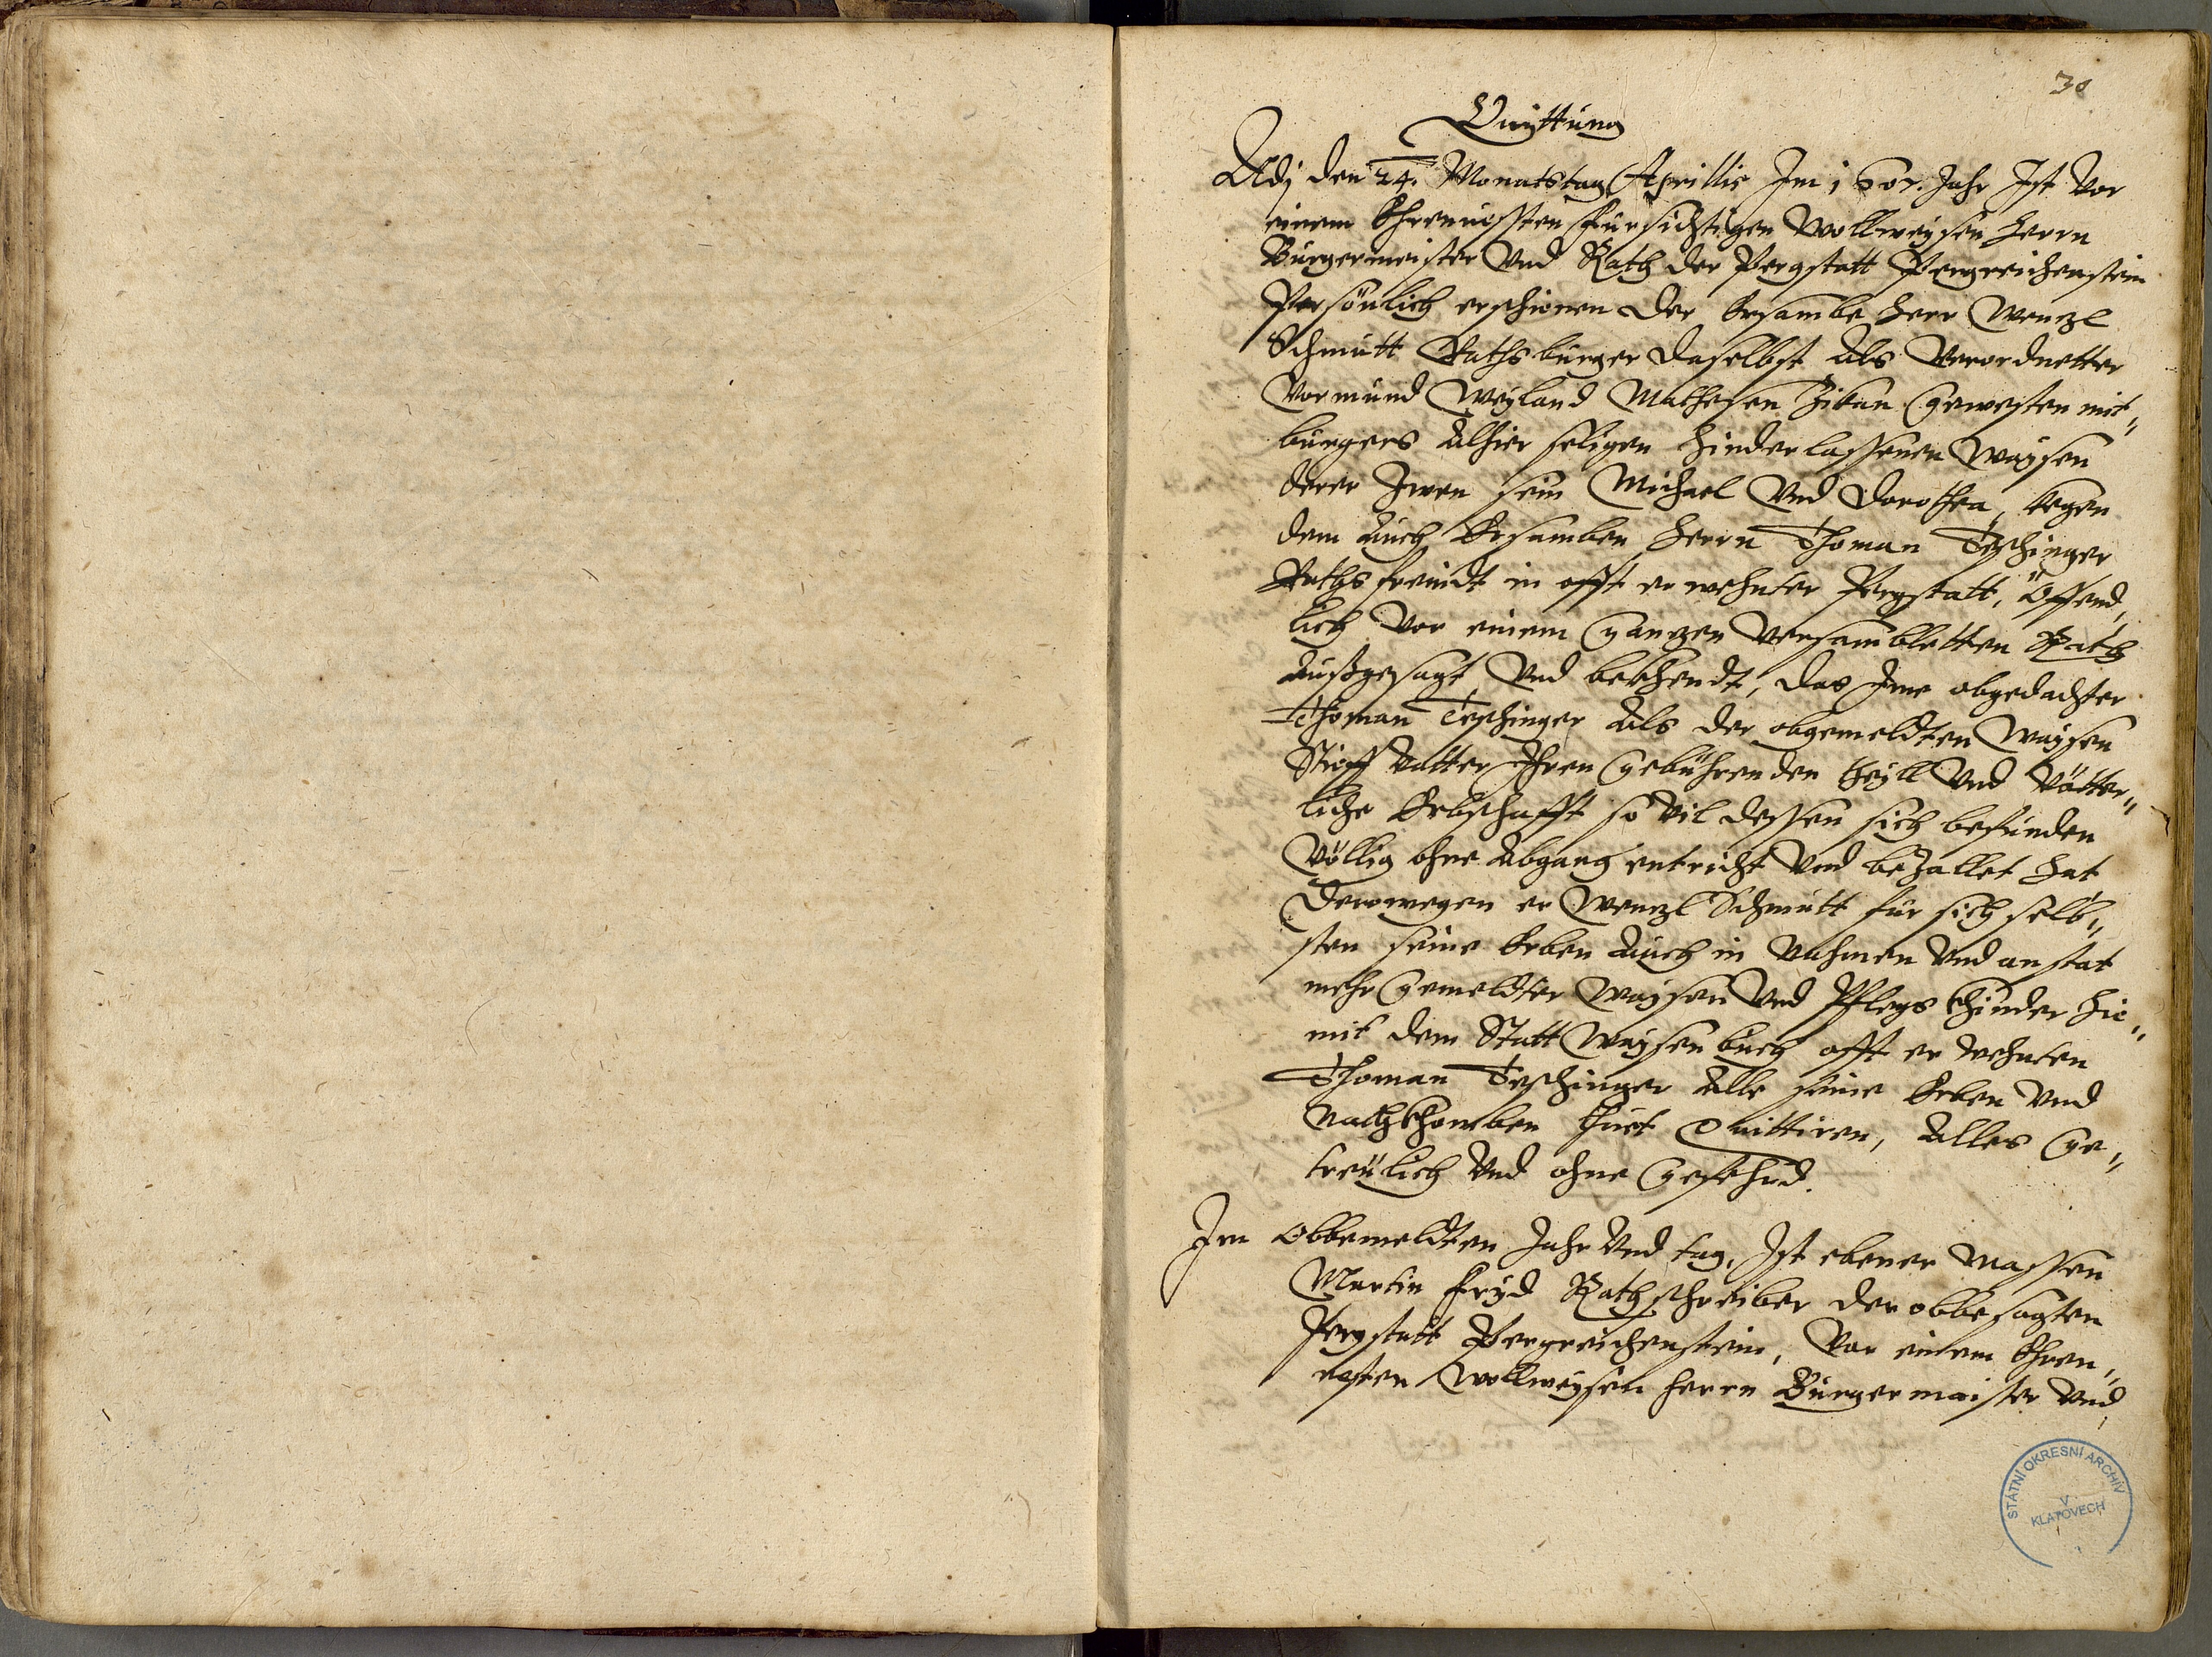 30
Quittung
Adj den 24. Monatstag Aprillis Im 1607. Jahr Ist vor
einem Ehrnuessten fürsichtigen Wollweysen Herrn
Burgermeister vnd Rath der Pergstatt Pergreichenstein
Persönlich erschienen der Ersambe Herr Wenzl
Schmutt Rathsburger daselbst als verordnetter
Vormund Weyland Mathesen Zikan gewesten mit„
burgers alhier seligen hinderlassenen Waysen
derer Zwen sein Michael vnd Dorothea, kegen
dem auch Ersamben Herrn Thoman Teschinger
Rathsfreindt in offt erwehnter Pergstatt, öffend„
lich vor einem ganzen versambletten Rath
außgesagt vnd bekhendt, das Ime obgedachter
Thoman Teschinger als der obgemeldten Waysen
Stieff Vatter Ihren gebührenden theyll vnd Vätter„
liche Erbschafft so vil dessen sich befunden
Völlig ohne Abgang entricht vnd bezallet hat
Derowegen er Wenzl Schmutt für sich selb„
sten seine Erben auch in Nahmen vnd anstat
mehrgemeldter Waysen vnd Pflegskhinder hie„
mit dem Statt Waysenbuch offt erwehnten
Thoman Teschinger alle seine Erben vnd
Nachkhomben thuet quittiren, alles ge„
treülich vnd ohne gefehrd.
Im obbemeldten Jahr vnd tag, Ist ebener massen
Martin Fryd Rathschreiber der obbesagten
Pergstatt Pergreichenstein, vor einem Ehren„
uesten Wollweysen Herrn Burgermaister vnd
STÁTNÍ OKRESNÍ ARCHÍV
V
KLATOVECH